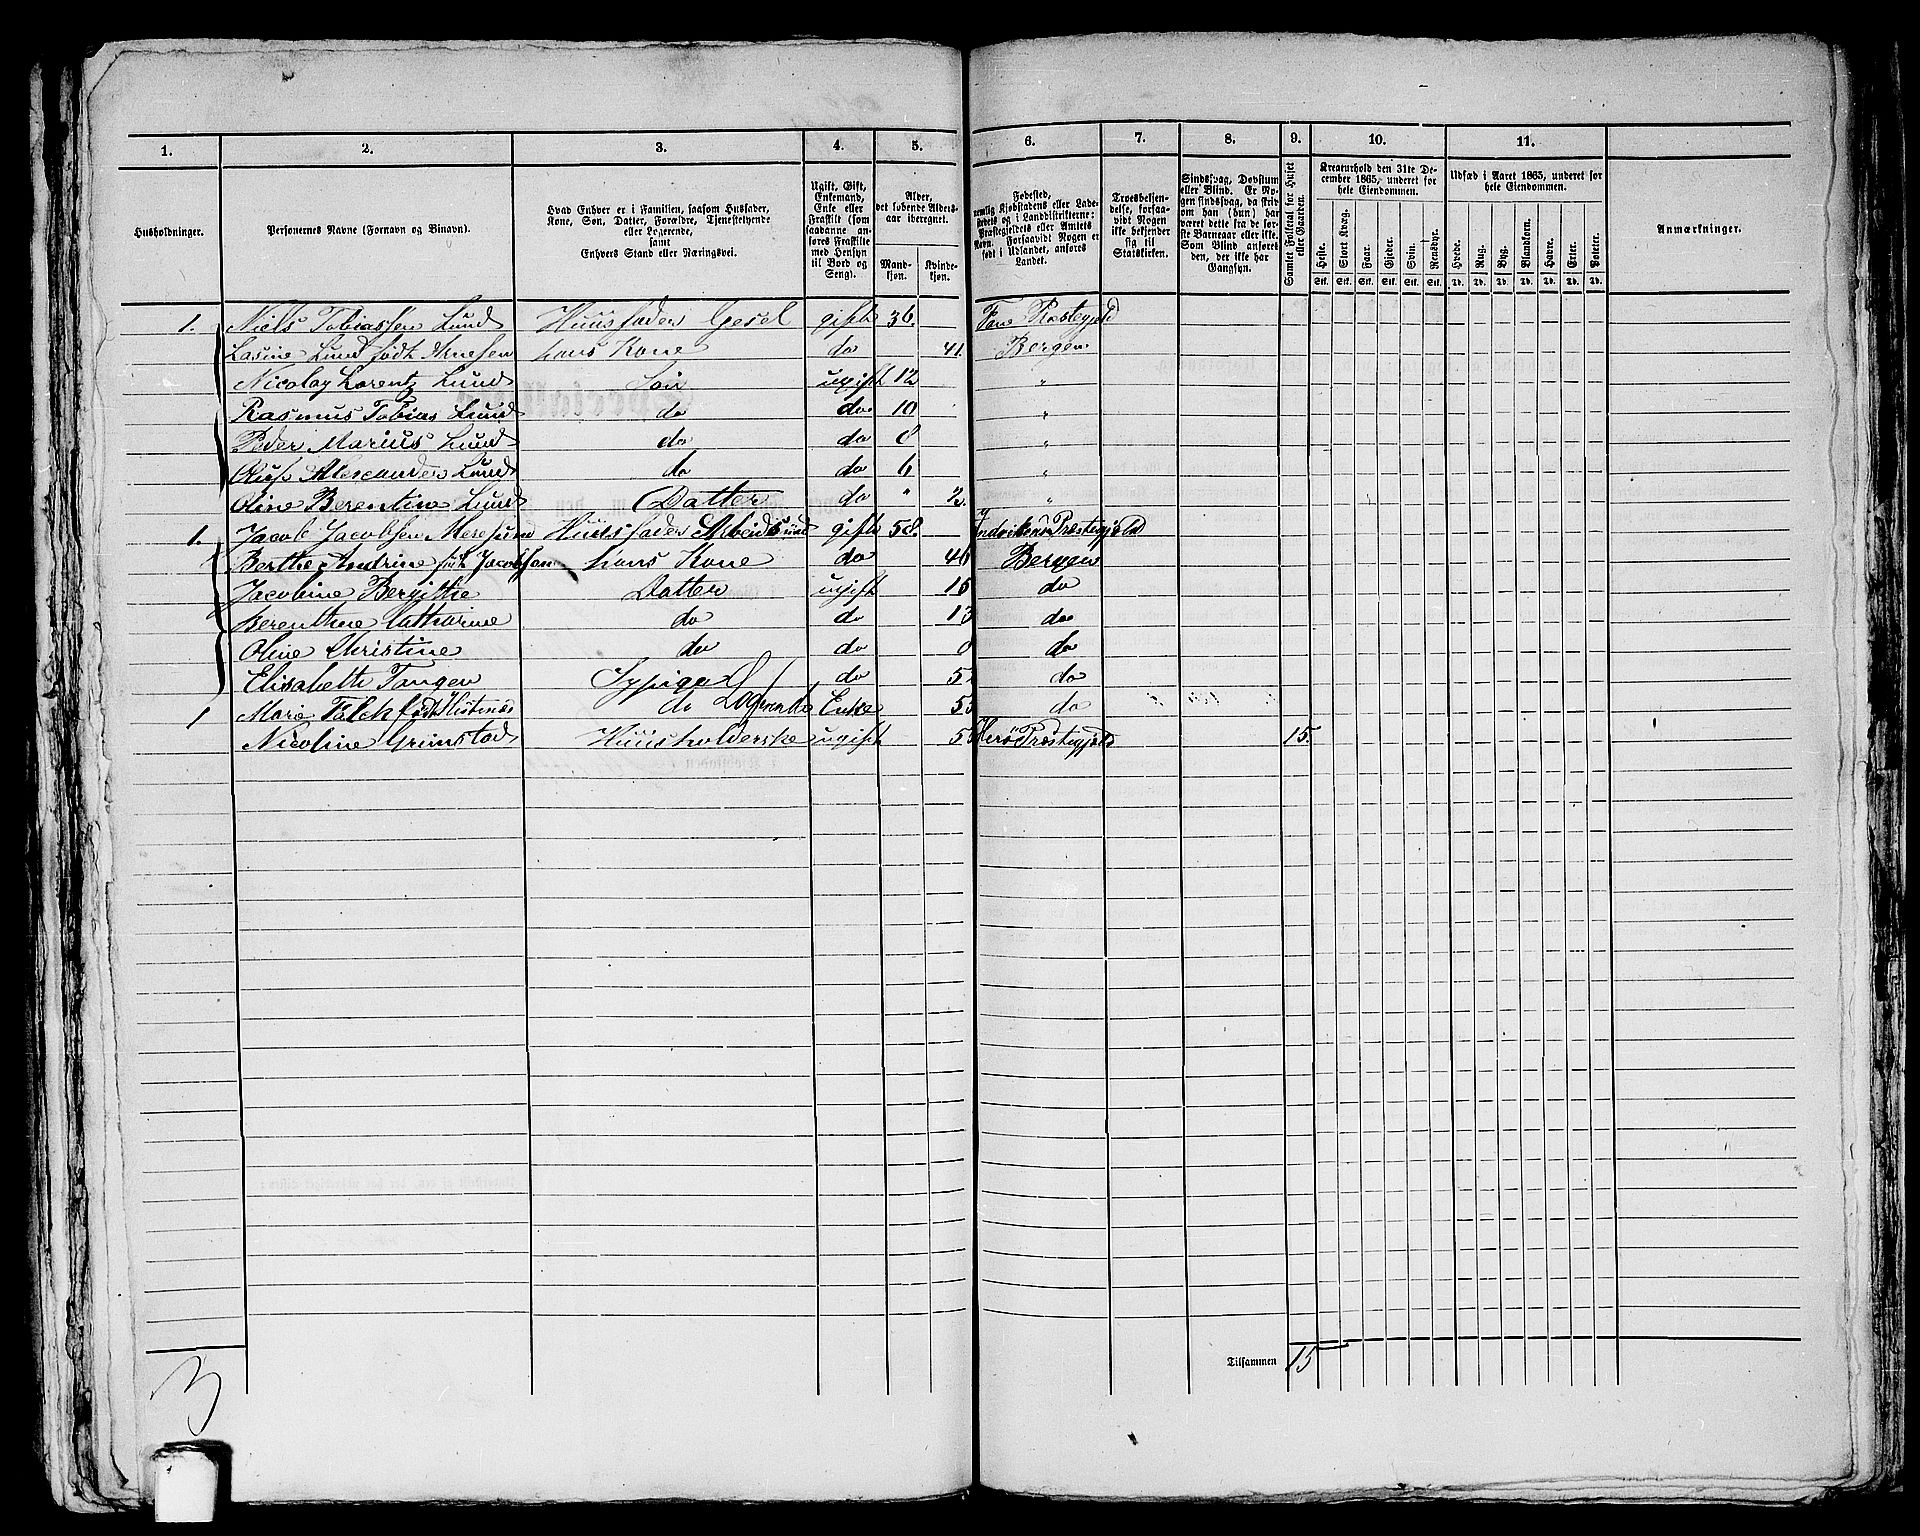 1. 2. 3. 4. 5. 6. 7. 8. 9. 10. 11.
Husholdninger.
Personernes Navne (Fornavn og Binavn).
Hvad Enhver er i Familien, saasom Husfader,
Kone, Søn, Datter, Forældre, Tjenestetyende
eller Logerende,
samt
Enhvers Stand eller Næringsvei.
Ugift, Gift,
Enkemand,
Enke eller
Fraskilt (som
saadanne an-
føres Fraskilte
med Hensyn
til Bord og
Seng).
Alder,
det løbende Alders-
aar iberegnet.
Mand-
kjøn.
Kvinde-
kjøn.
Fødested,
nemlig Kjøbstadens eller Lade-
stedets og i Landdistrikterne:
Præstegjeldets eller Amtets
Navn. Forsaavidt Nogen er
født i Udlandet, anføres
Landet.
Troesbekjen-
delse, forsaa-
vidt Nogen
ikke bekjender
sig til
Statskirken.
Sindssvag, Døvstum
eller Blind. Er No-
gen sindssvag, da skriv
om han (hun) har
været dette fra de før-
ste Barneaar eller ikke.
Som Blind anføres
den, der ikke har
Gangsyn.
Samlet Folketal for Huset
eller Gaarden.
Kreaturhold den 31te De-
cember 1865, underet for
hele Eiendommen.
Heste. Stort Kvæg. Faar. Gjeder. Svin. Rensdyr.
Stk. Stk. Stk. Stk. Stk. Stk.
Udsæd i Aaret 1865, underet for
hele Eiendommen.
Hvede. Rug. Byg. Blandkorn. Havre. Erter. Poteter.
Td. Td. Td. Td. Td. Td. Td.
Anmærkninger.
1. Niels Tobiassen Lund Huusfader Gesel gift 36. Fane Præstegjeld
Lasine Lund født Arnesen hans Kone do 41. Bergen
Nicolay Lorentz Lund Søn ugift 12 "
Rasmus Tobias Lund do do 10 "
Peder Marius Lund do do 8 "
Alexander Lund do do 6 "
Oline Berentine Lund Datter do " 2. "
1. Jacob Jacobsen Huusfader Arbeidsmand gift 58. Indvikens Præstegjeld
Berthe Andrine født Jacobsen hans Kone do 46 Bergen
Jacobine Bergitte Datter ugift 16 do
Berenthine Catharine do do 13 do
Oline Christine do do 8 do
Elisabeth Tangen Sypige do 5 do
1 Marie Falch født do Logerende Enke 5 do
Nicoline Grimstad Huusholderske ugift 5 Herö Præstegjeld 15.
Tilsammen 15
3